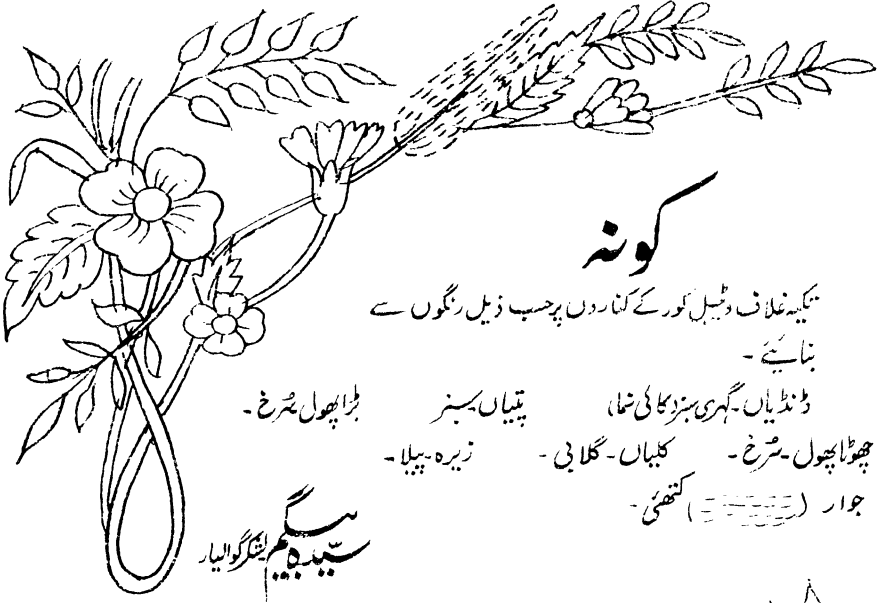 کونہ
تکیہ غلاف و ٹیبل کور کے کناروں پر حسب ذیل رنگوں سے
بنائیے۔
ڈنڈیاں۔ گہری سبز (کاہی نما) پتیاں۔ سبز بڑا پھول۔ سُرخ۔
چھوٹا پھول۔ سُرخ۔ کلیاں۔ گلابی۔ زیرہ۔ پیلا۔
جوار ( ) کتھئی۔
سیّدہ بیگم لشکر گوالیار